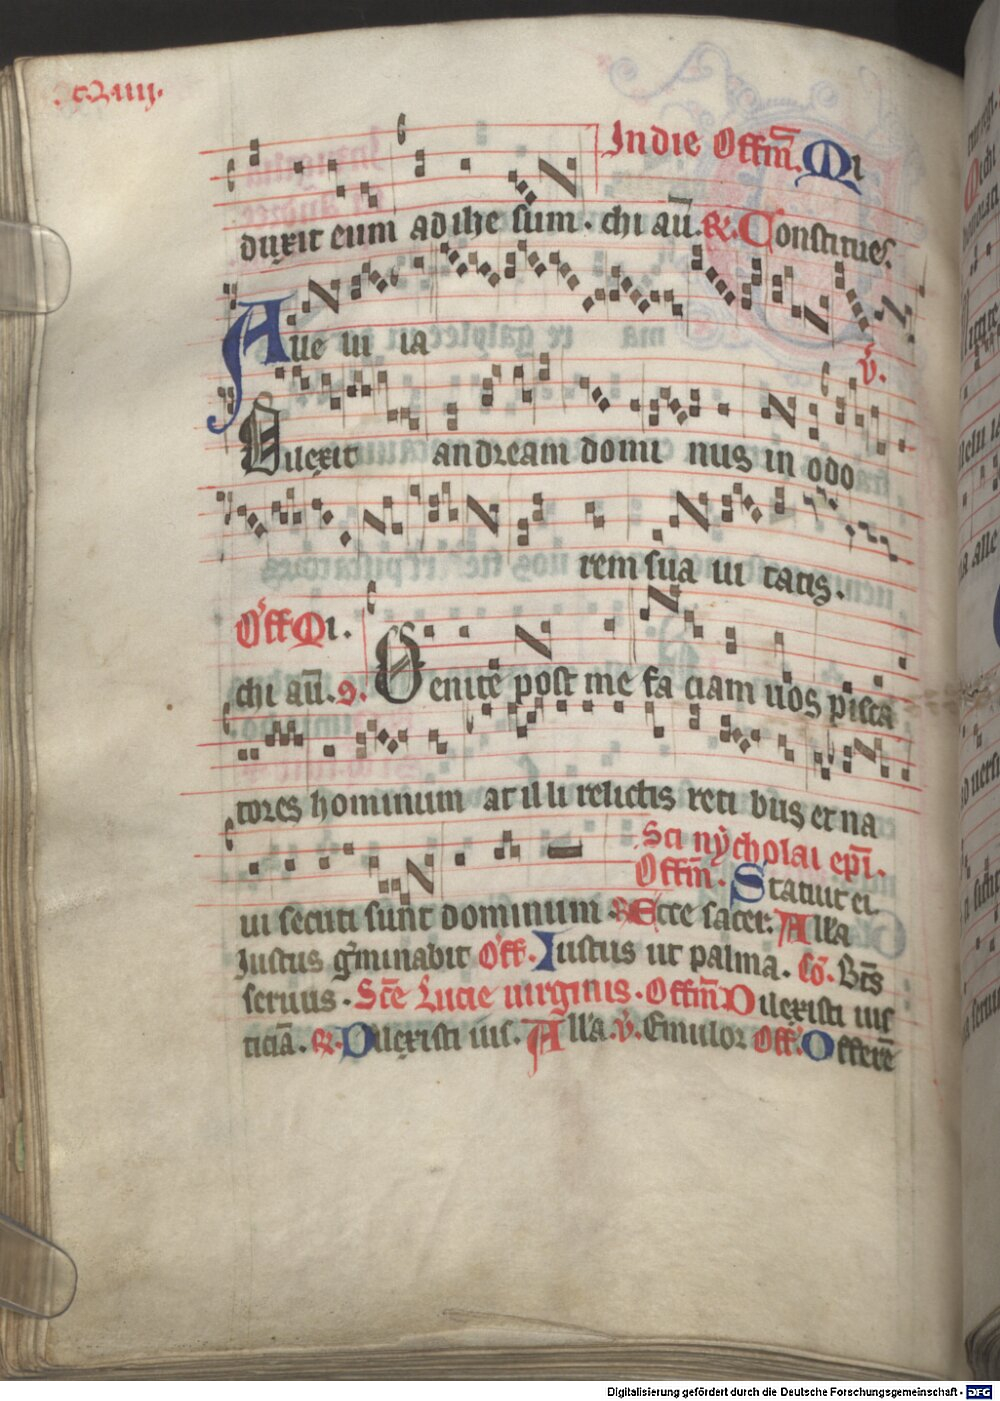 In die Offm̅. Mi
duxit eum ad ihe sum. chi au̅. R. Constitues.
Alle lu ia
V.
Dilexit andream domi nus in odo
rem sua ui tatis.
Off Mi.
chi au̅. Co. Uenite post me fa ciam uos pisca
tores hominum at il li relictis reti bus et na
Sci nycholai epi̅.
Offm̅. Statuit ei
ui secuti sunt dominum R Ecce sacer. All'a
Iustus g'minabit Off. Iustus ut palma. Co̅. Bt̅s
seruus. Sce̅ Lucie uirginis. Offm̅ Dilexisti ius
ticia̅. R. Dilexisti ius. All'a. V. Emulor Off. Offere̅
Digitalisierung gefördert durch die Deutsche Forschungsgemeinschaft - DFG